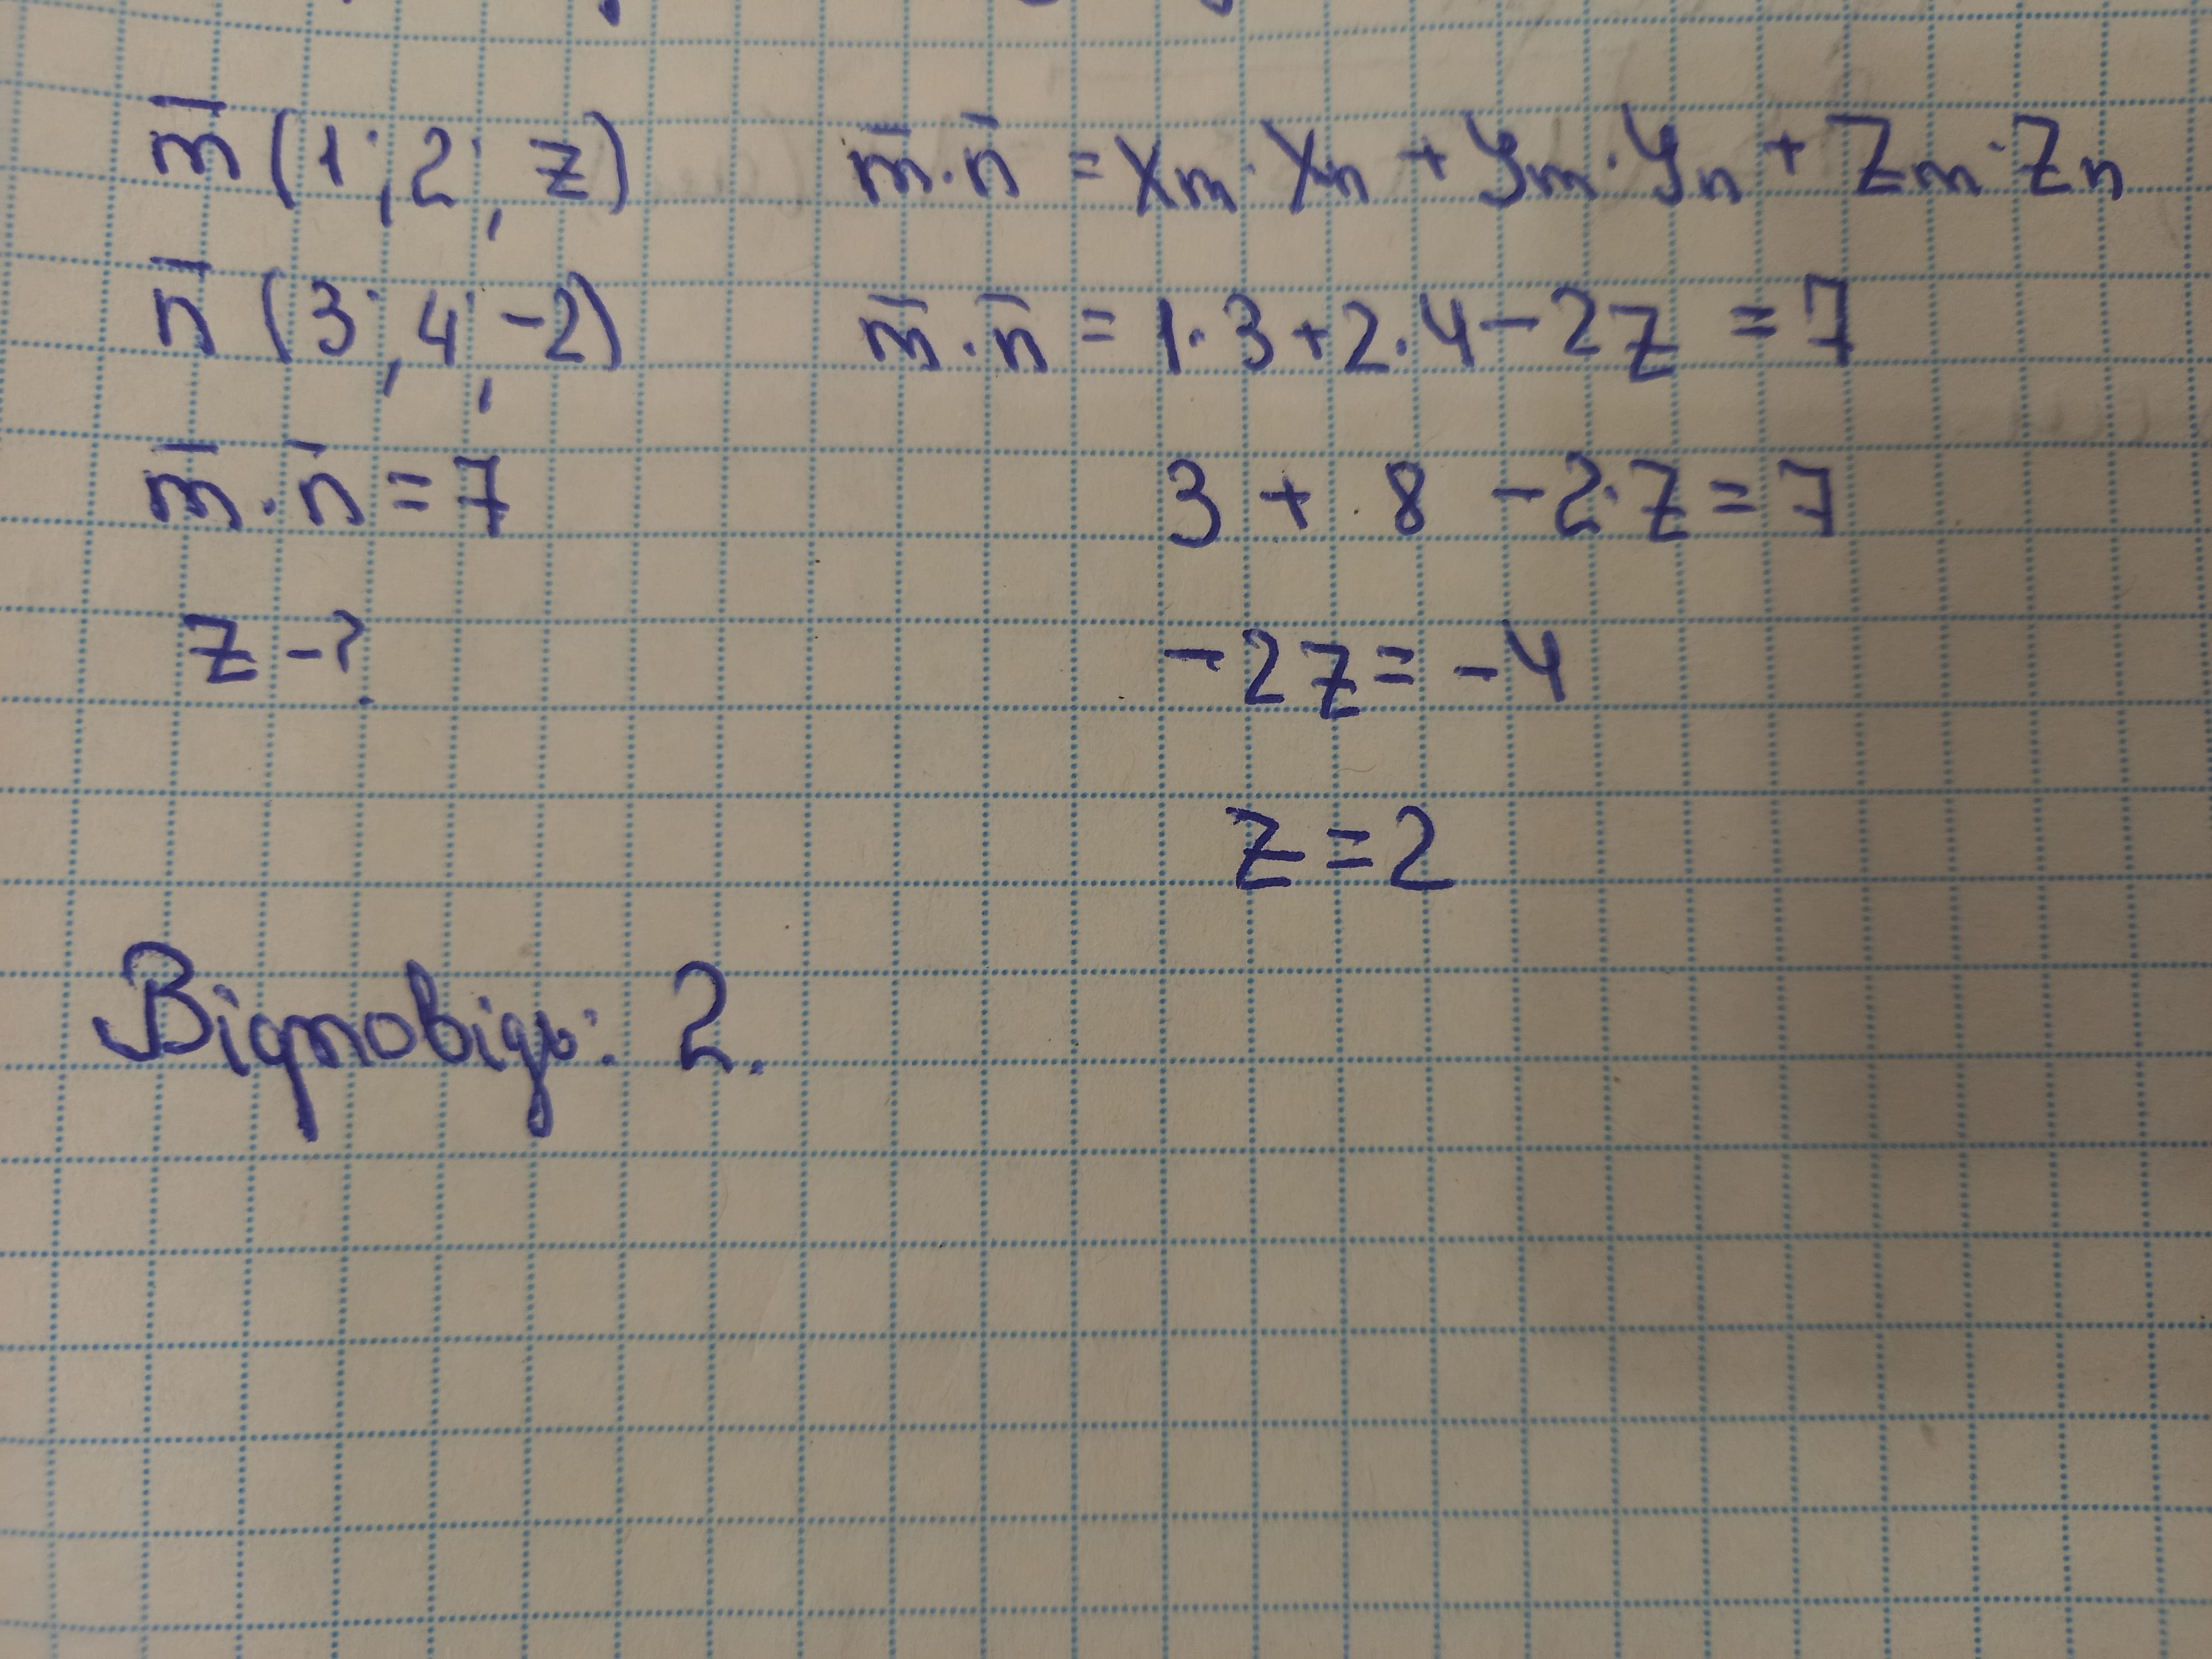 m̅ (1; 2; z)
n̅ (3; 4; -2)
m̅ · n̅ = 7
z - ?
m̅ · n̅ = xₘ · xₙ + yₘ · yₙ + zₘ · zₙ
m̅ · n̅ = 1 · 3 + 2 · 4 - 2z = 7
3 + 8 - 2 · z = 7
-2z = -4
z = 2
Відповідь: 2.